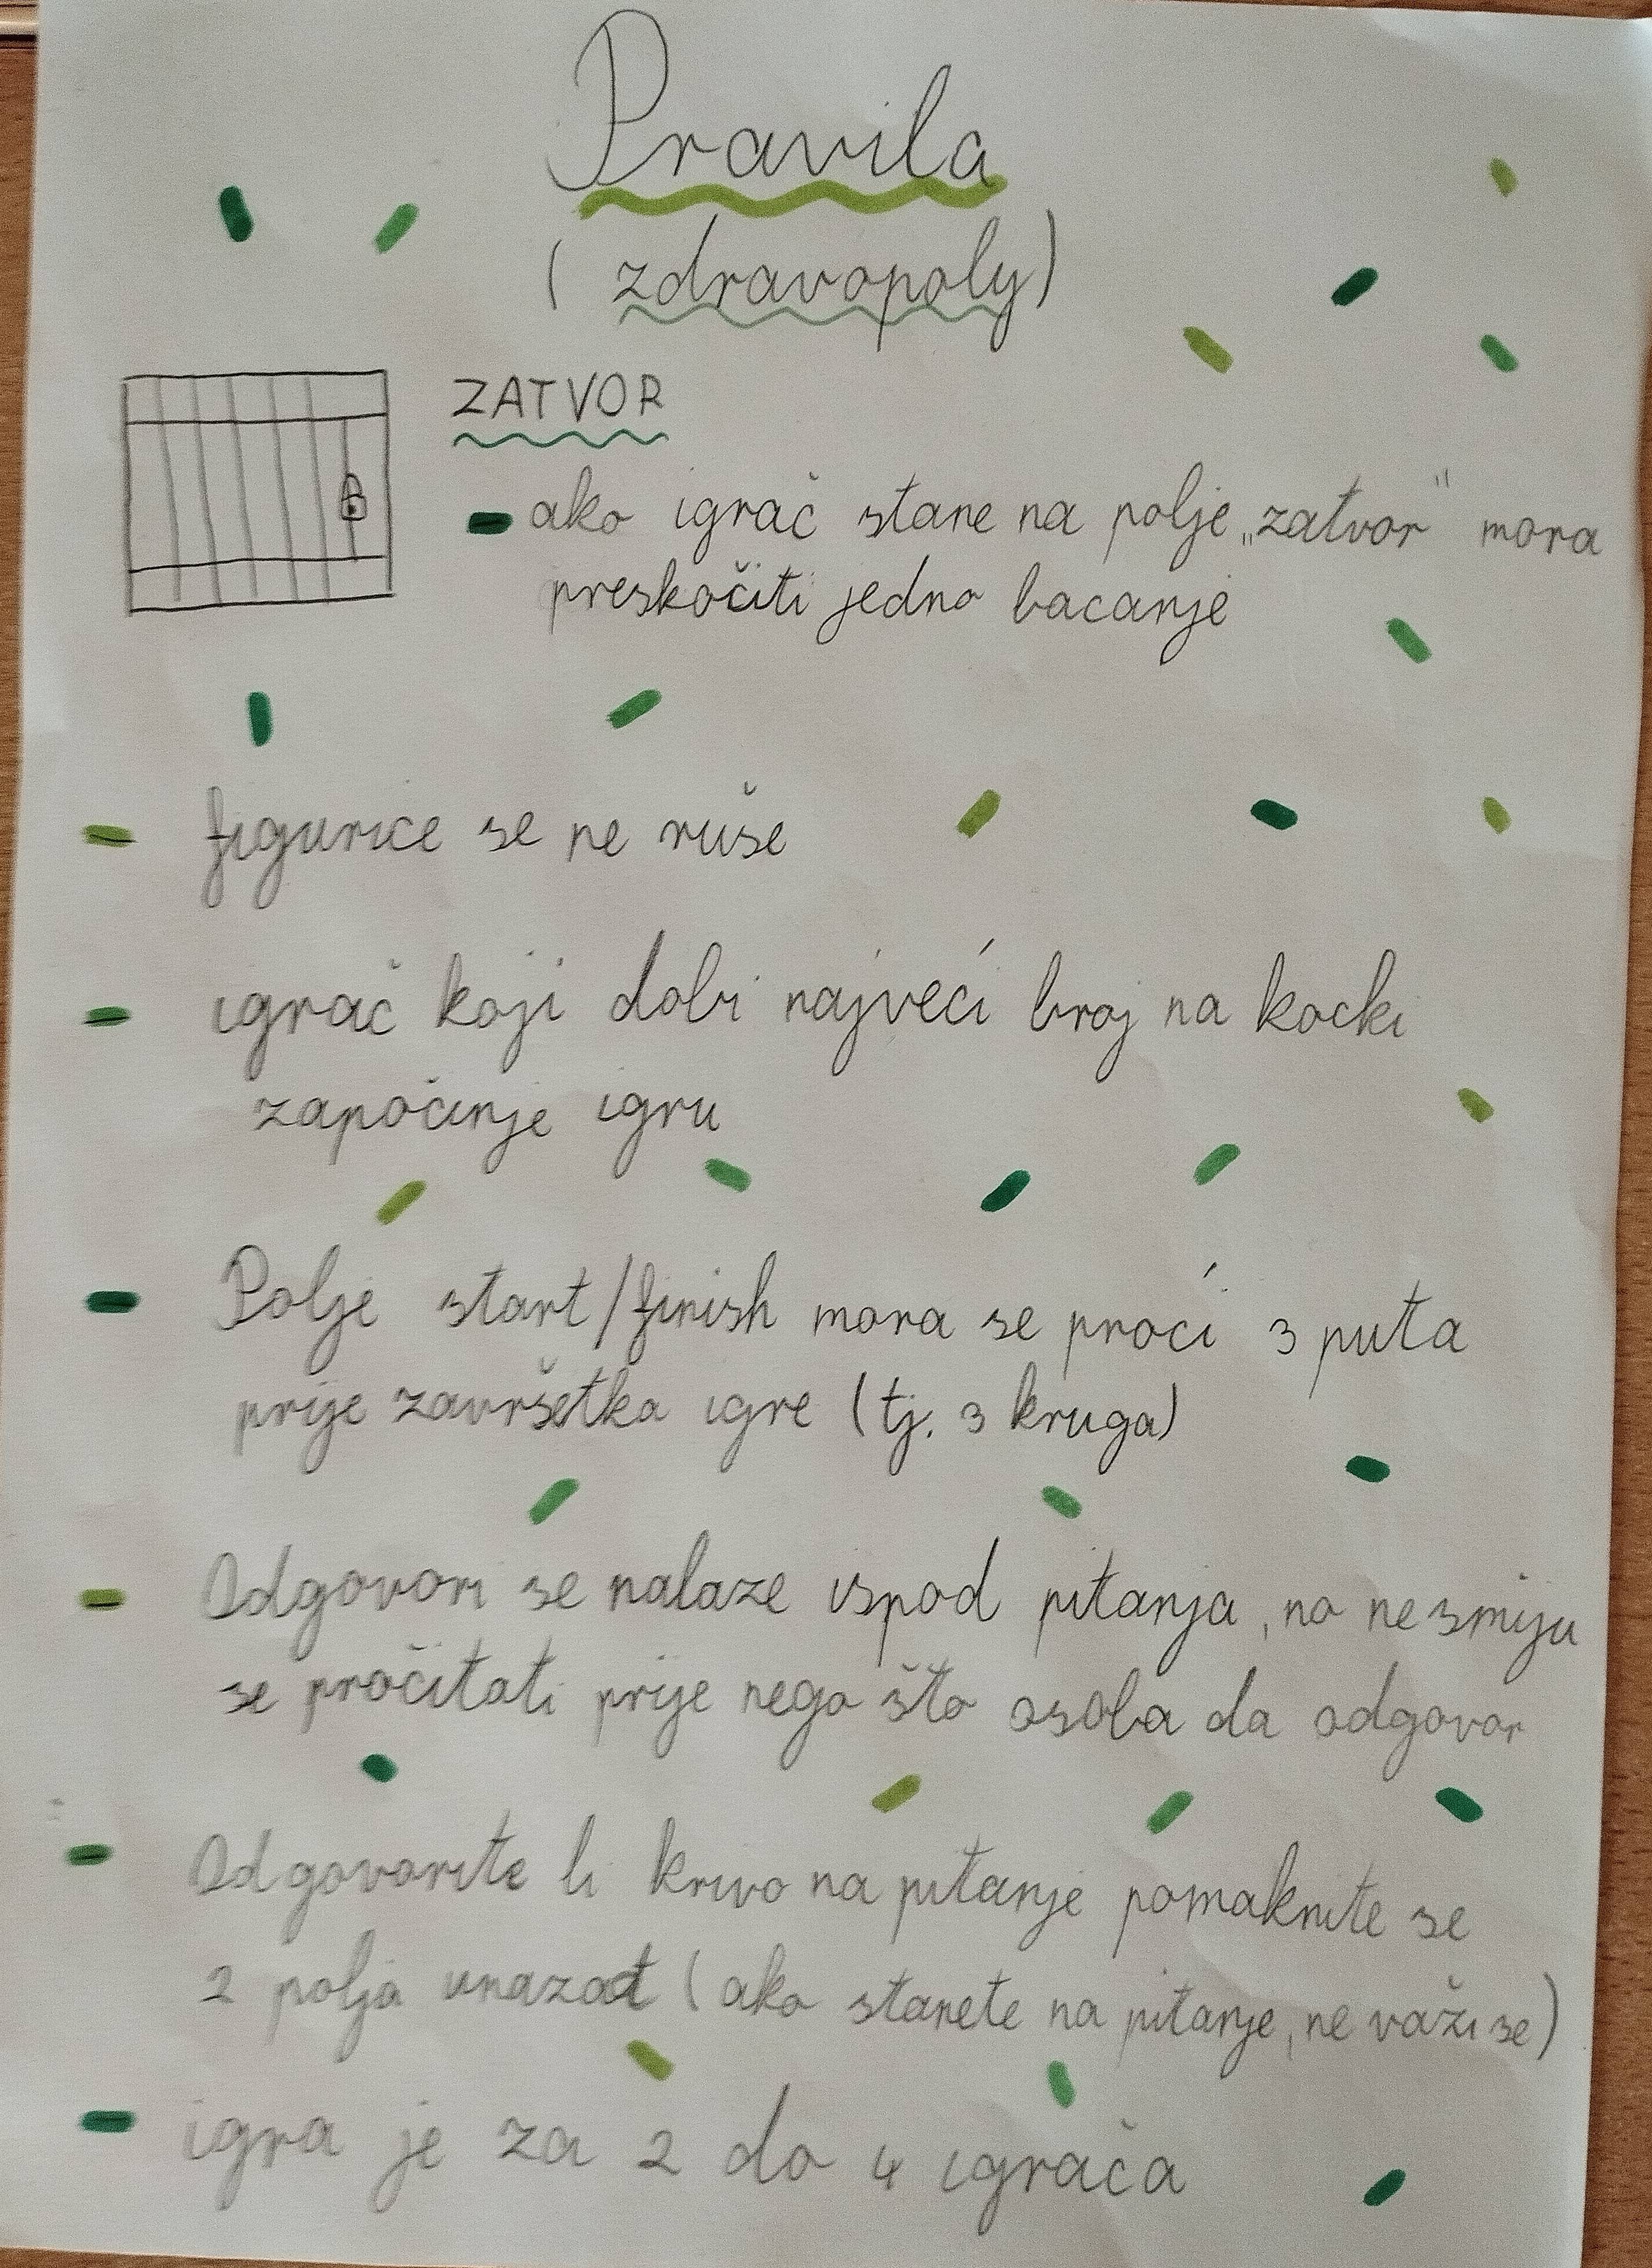 Pravila
(zdravopoly)
ZATVOR
- ako igrač stane na polje „zatvor" mora
preskočiti jedno bacanje
- figurice se ne ruše
- igrač koji dobi najveći broj na kocki
započinje igru
- Polje start/finish mora se proći 3 puta
prije završetka igre (tj. 3 kruga)
- Odgovori se nalaze ispod pitanja, no ne smiju
se pročitati prije nego što osoba da odgovor
- Odgovorite li krivo na pitanje pomaknite se
2 polja unazad (ako stanete na pitanje, ne važi se)
- igra je za 2 do 4 igrača